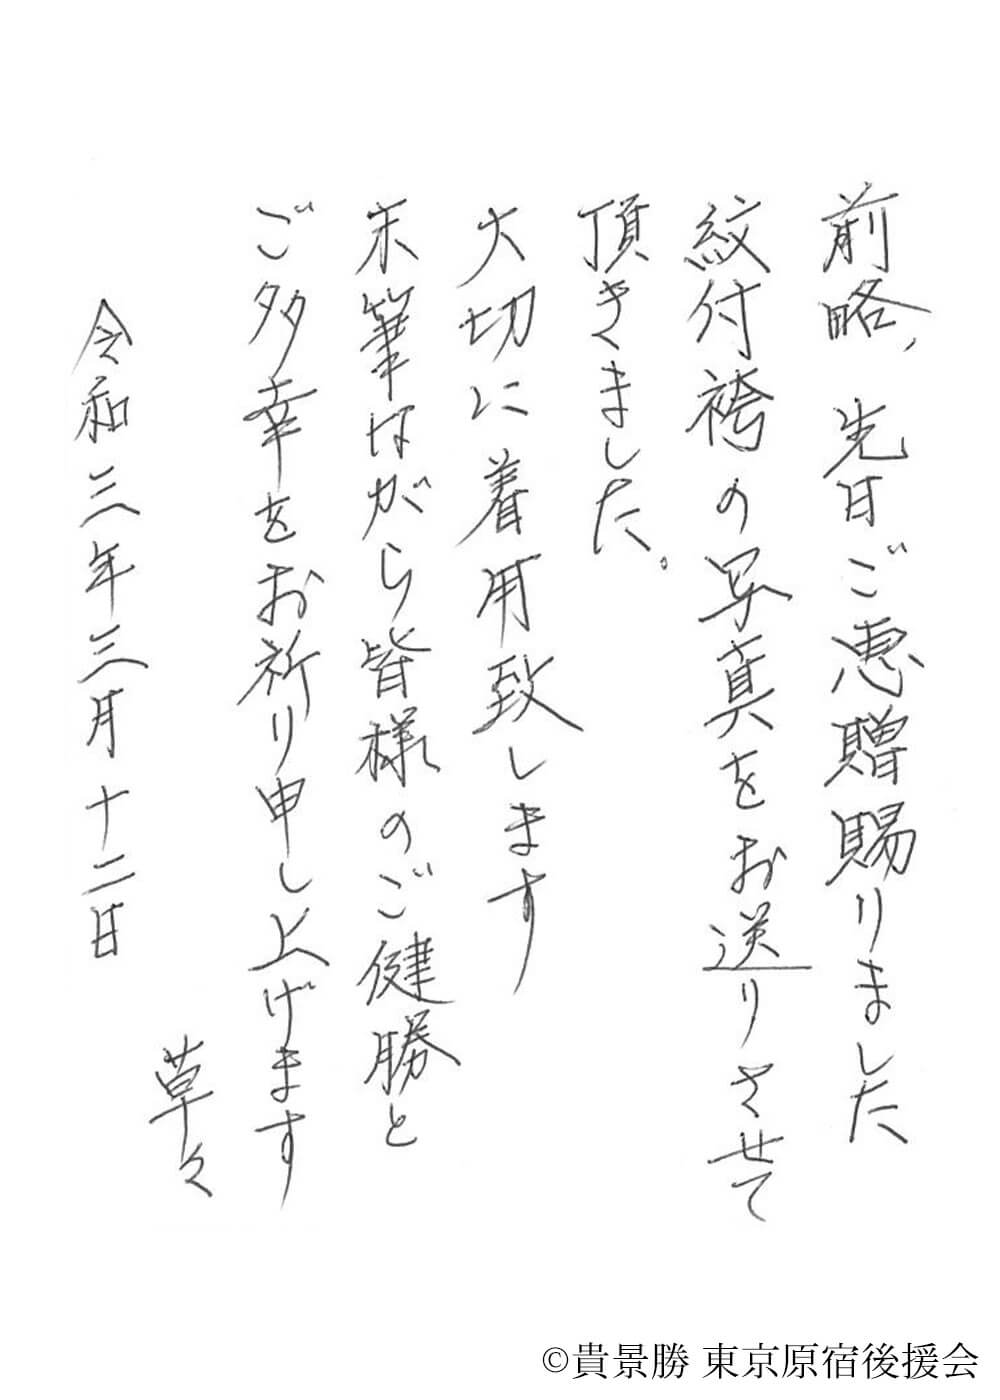 前略、先日ご恵贈賜りました
紋付袴の写真をお送りさせて
頂きました。
大切に着用致します
末筆ながら皆様のご健勝と
ご多幸をお祈り申し上げます
草々
令和三年三月十二日
©貴景勝 東京原宿後援会